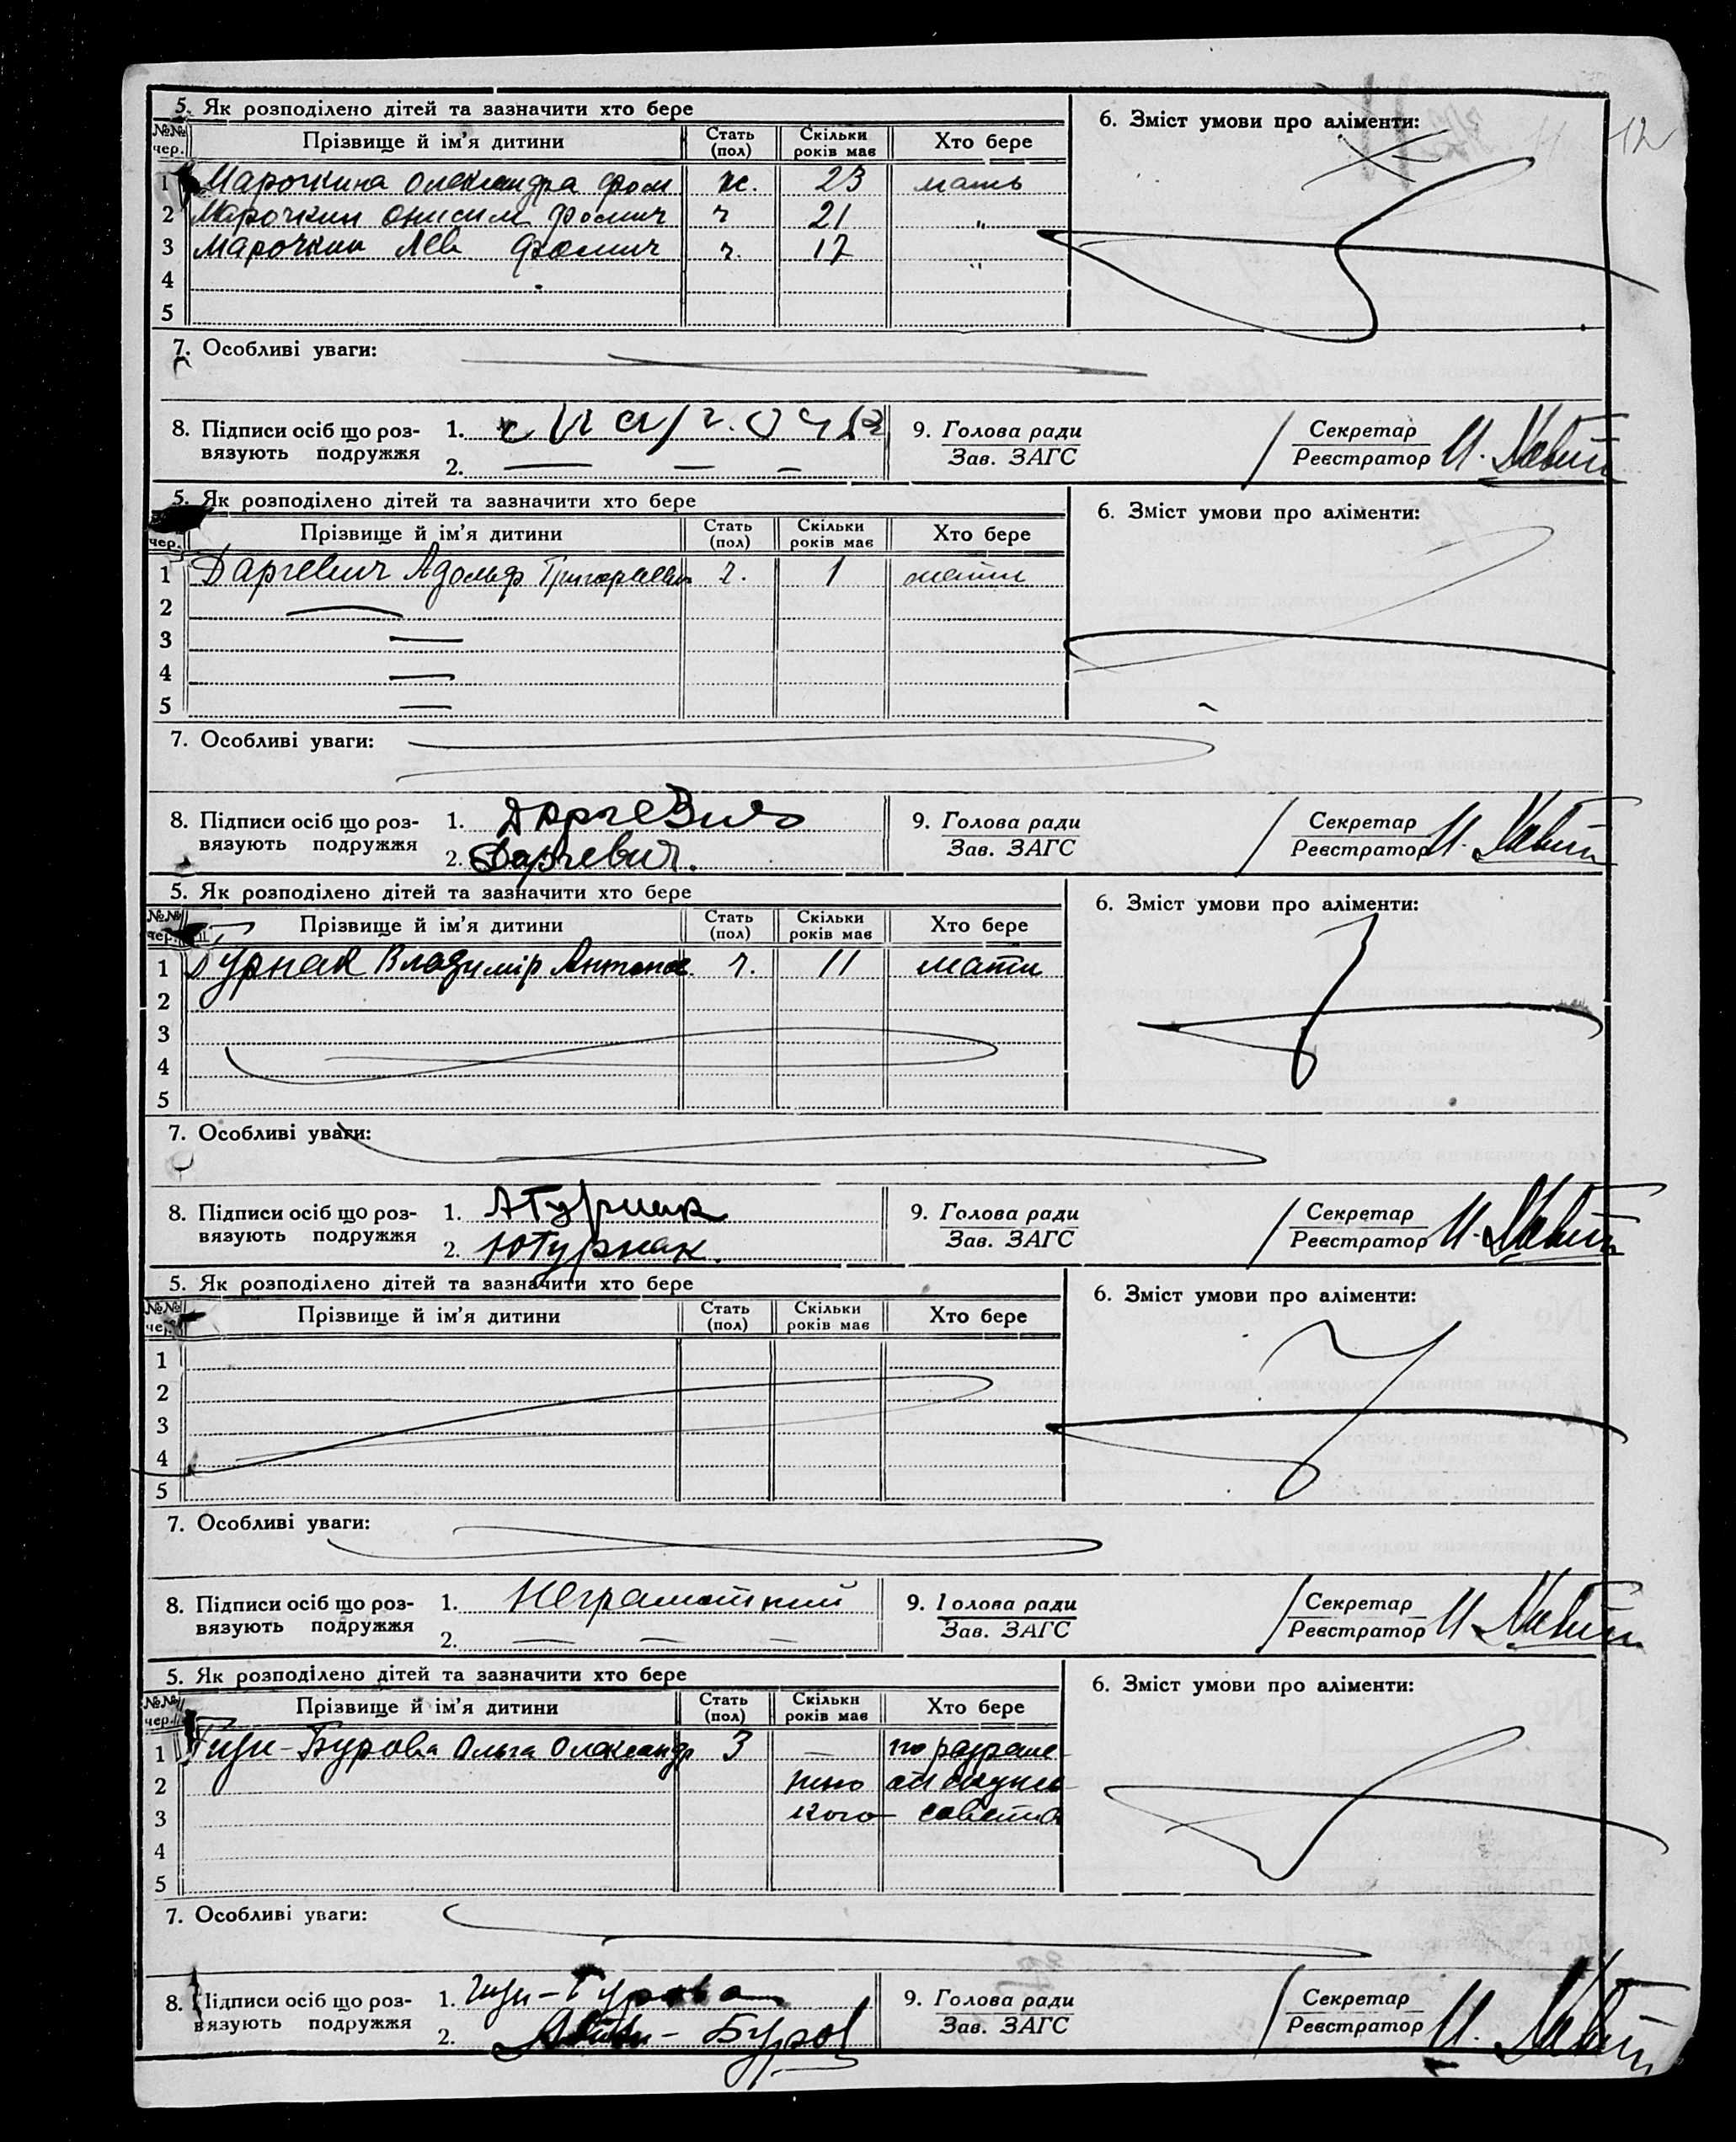 12
5. Як розподілено дітей та зазначити хто бере
6. Зміст умови про аліменти:
№№ чер. Прізвище й ім'я дитини Стать (пол) Скільки років має Хто бере
1 Марочкина Олександра Фом ж. 23 мать
2 Марочкин Онисим Фомич ч 21 "
3 Марочкин Лев Фомич ч. 17 "
4
5
7. Особливі уваги:
8. Підписи осіб що роз-
вязують подружжя
1.
2. — — —
9. Голова ради
Зав. ЗАГС
Секретар
Реєстратор И.
5. Як розподілено дітей та зазначити хто бере
6. Зміст умови про аліменти:
чер. Прізвище й ім'я дитини Стать (пол) Скільки років має Хто бере
1 Даргевич Адольф Григорьевич ч. 1 мати
2 —
3 —
4 —
5 —
7. Особливі уваги:
8. Підписи осіб що роз-
вязують подружжя
1. Даргевич
2. Даргевич.
9. Голова ради
Зав. ЗАГС
Секретар
Реєстратор И.
5. Як розподілено дітей та зазначити хто бере
6. Зміст умови про аліменти:
№№ чер. Прізвище й ім'я дитини Стать (пол) Скільки років має Хто бере
1 Турнак Владимір Антонов ч. 11 мати
2
3
4
5
7. Особливі уваги:
8. Підписи осіб що роз-
вязують подружжя
1. АТурнак
2. ЮТурнак.
9. Голова ради
Зав. ЗАГС
Секретар
Реєстратор И.
5. Як розподілено дітей та зазначити хто бере
6. Зміст умови про аліменти:
№№ чер. Прізвище й ім'я дитини Стать (пол) Скільки років має Хто бере
1
2
3
4
5
7. Особливі уваги:
8. Підписи осіб що роз-
вязують подружжя
1. Неграмотний
2. — — —
9. Голова ради
Зав. ЗАГС
Секретар
Реєстратор И.
5. Як розподілено дітей та зазначити хто бере
6. Зміст умови про аліменти:
№№ чер. Прізвище й ім'я дитини Стать (пол) Скільки років має Хто бере
1 Бурова Ольга Олександр 3 — по разреше-
2 нию
3 кого совета
4
5
7. Особливі уваги:
8. Підписи осіб що роз-
вязують подружжя
1.
2. Буров
9. Голова ради
Зав. ЗАГС
Секретар
Реєстратор И.